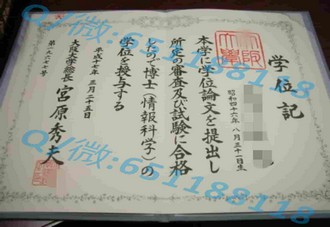 学位記
昭和四十六年 八月三十一日生
本学に学位論文を提出し
所定の審査及び試験に合格
したので博士（情報科学）の
学位を授与する
平成十七年 三月二十五日
大阪大学総長 宮原秀夫
大阪
大學
Q/微:651188118
Q/微:651188118
Q/微:651188118